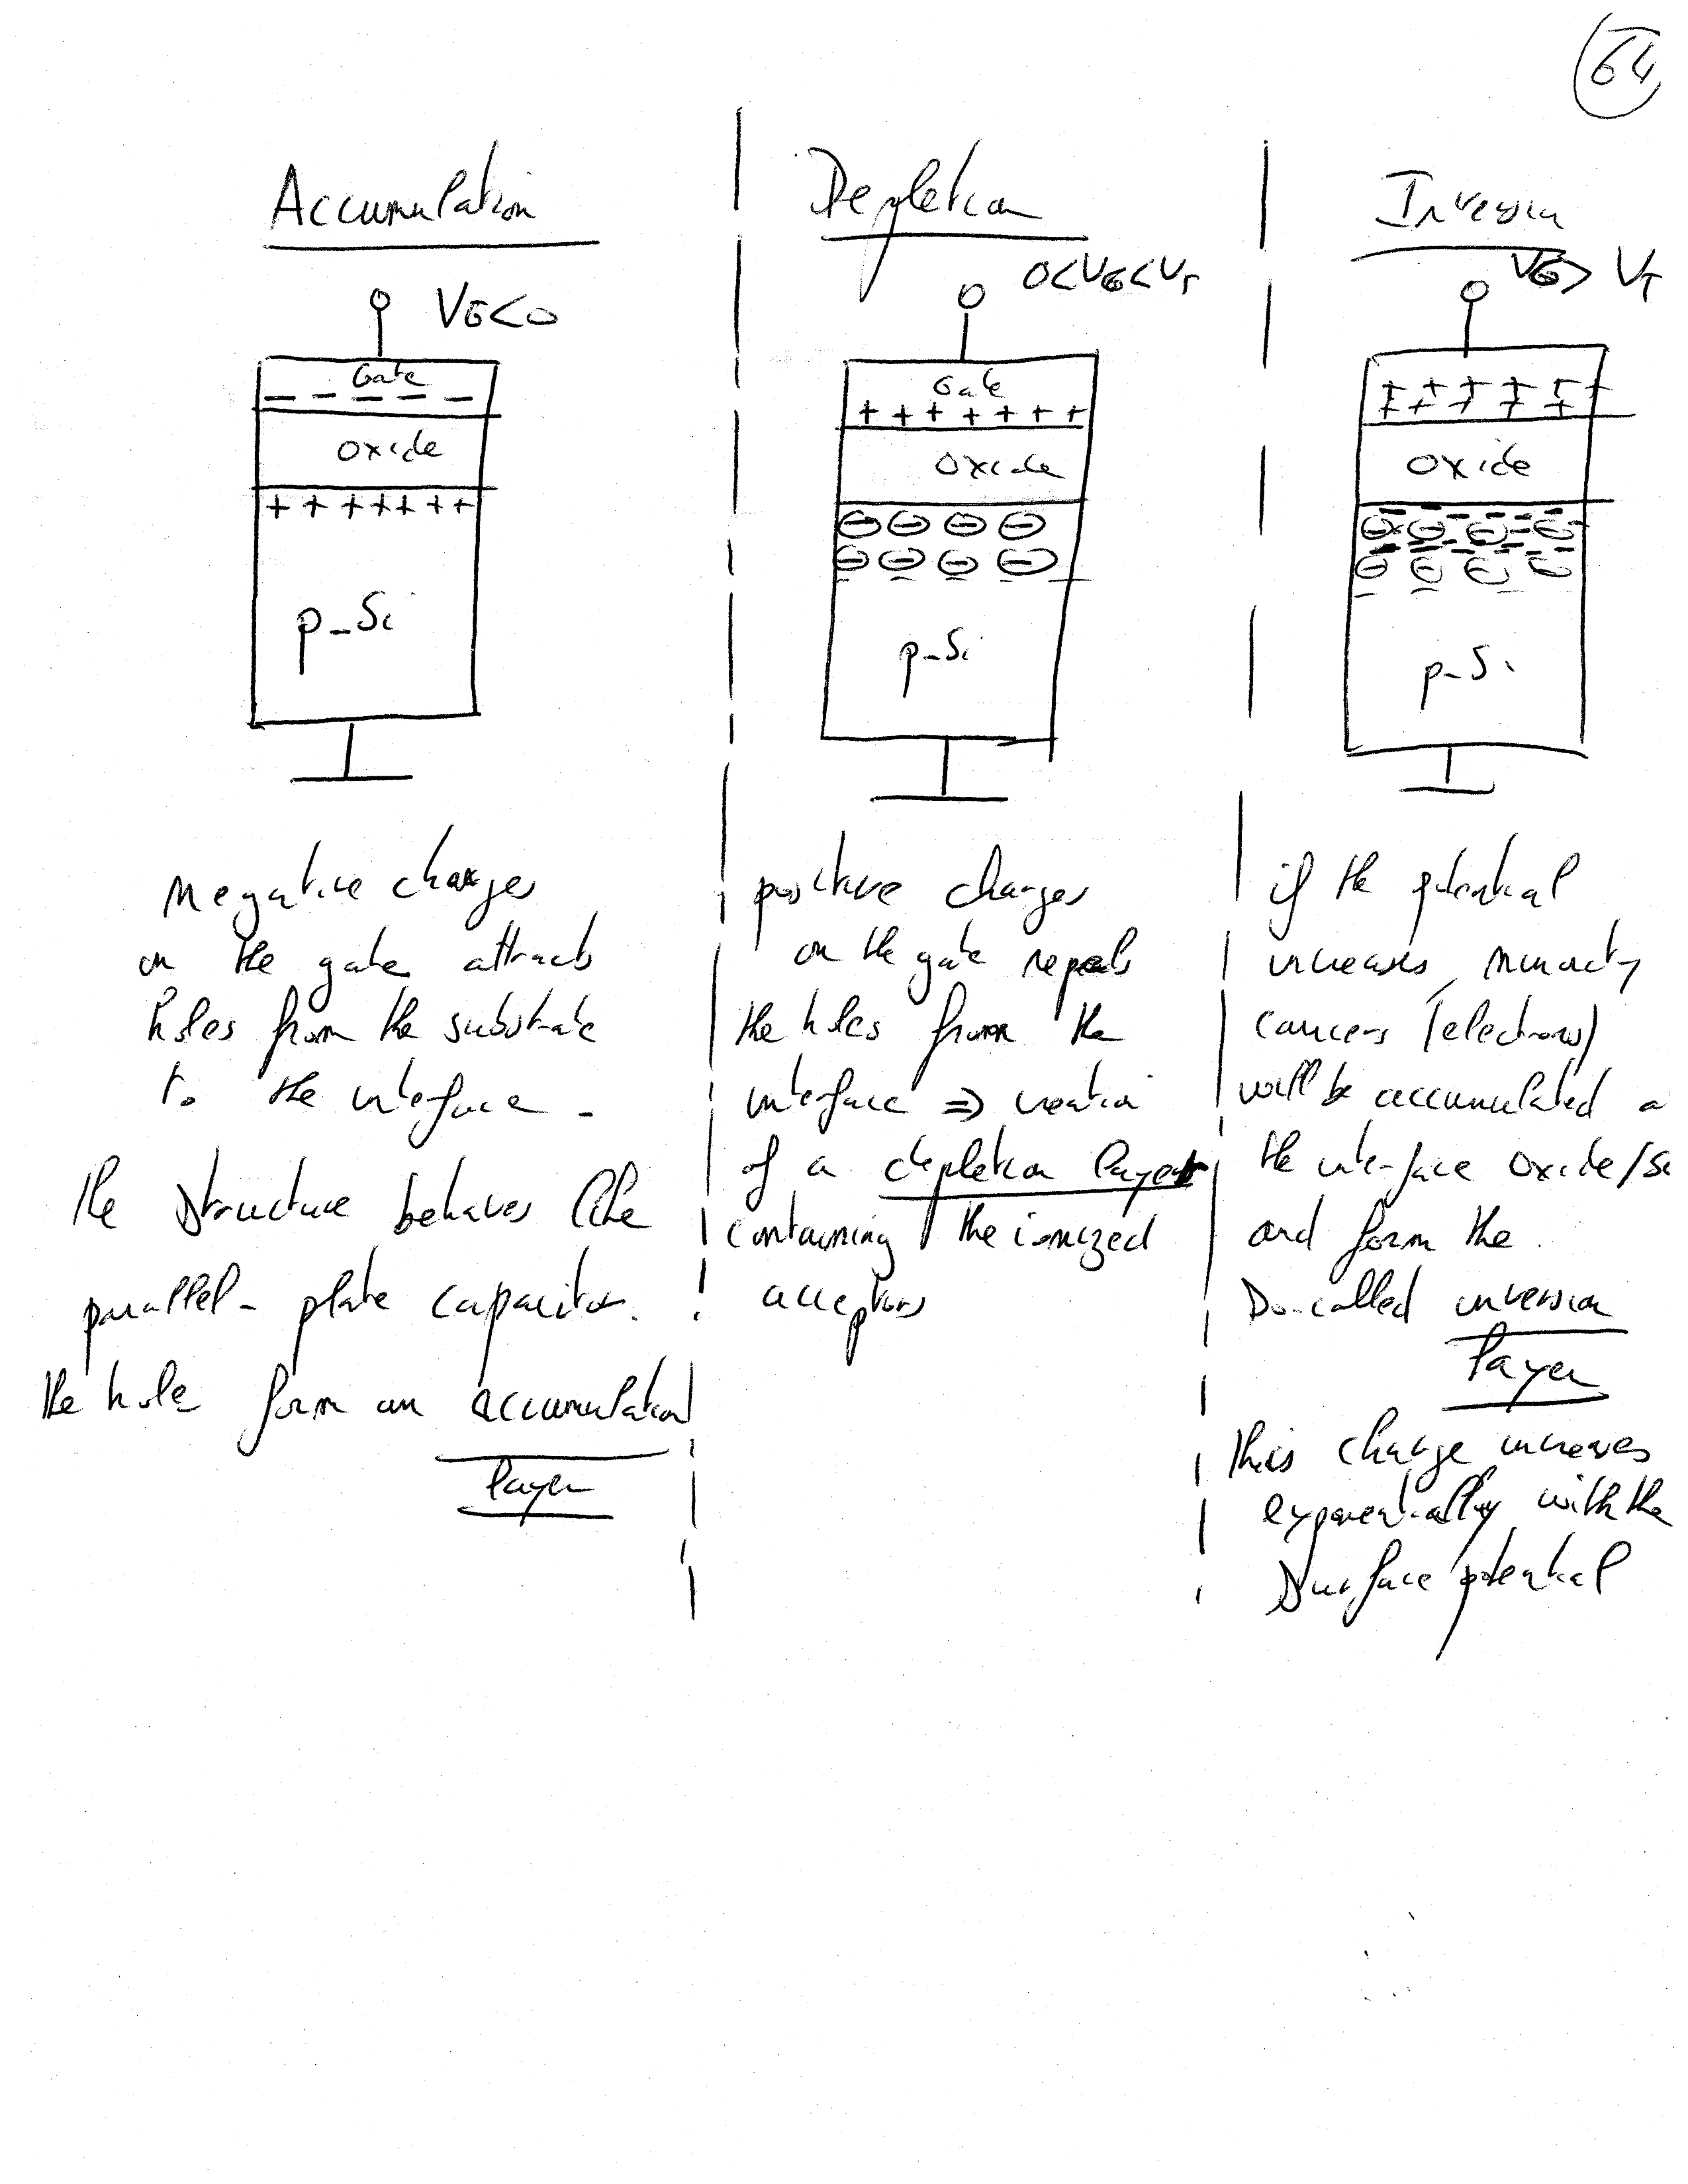 64
Accumulation
VG<0
Gate
— — — — —
oxide
+ + + + + + +
p-Si
Negative charges
on the gate attracts
holes from the substrate
to the interface.
the structure behaves like
parallel-plate capacitor.
the hole form an accumulation
layer
Depletion
0<VG<VT
Gate
+ + + + + + +
oxide
p-Si
positive charges
on the gate repels
the holes from the
interface => creation
of a depletion layer
containing the ionized
acceptors
Inversion
VG> VT
oxide
p-Si
if the potential
increases, minority
carriers (electrons)
will be accumulated a
the interface oxide/Si
and form the
so-called inversion
layer
this charge increases
exponentially with the
surface potential